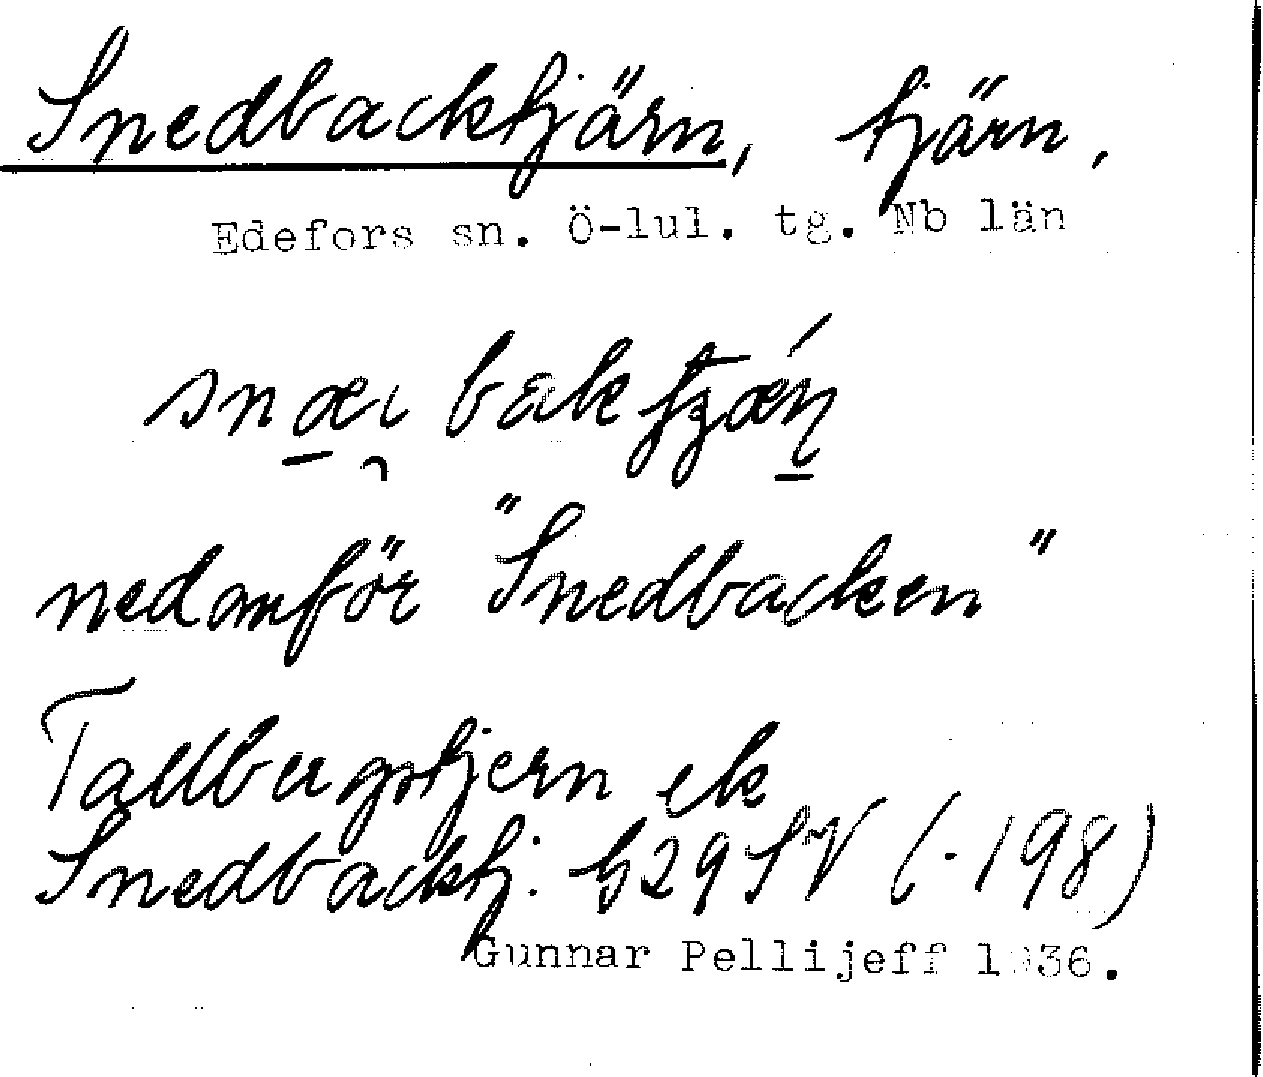 Snedbacktjärn, tjärn.
Edefors sn. Ö-lul. tg. Nb län
nedanför "Snedbacken"
Tallbergstjern ek
Snedbacktj. b29SV (.198)
Gunnar Pellijeff 1936.